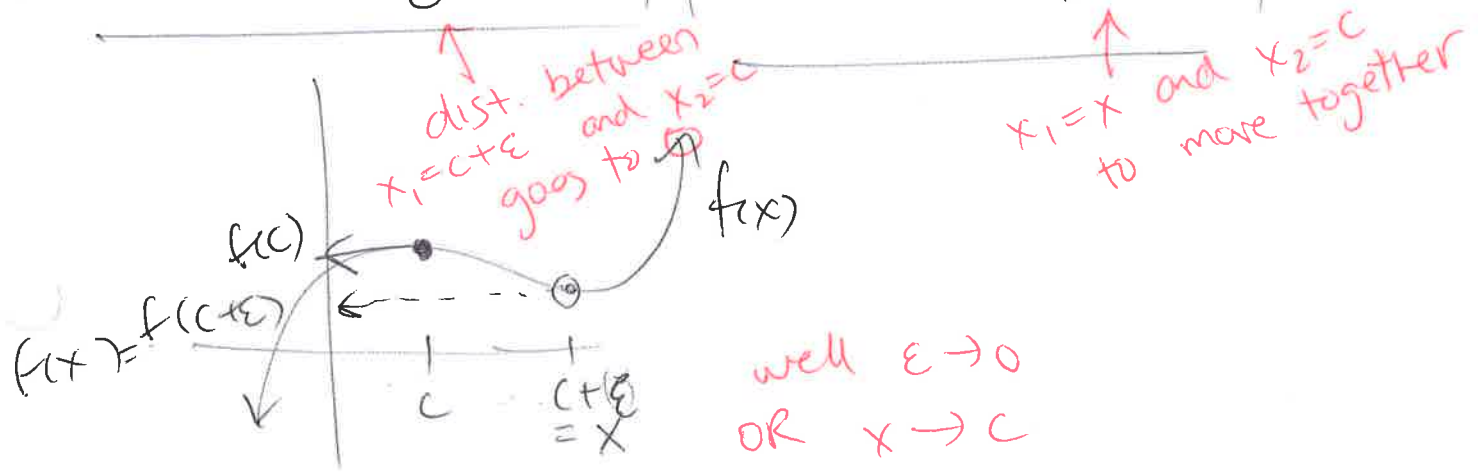 dist. between
x₁=c+ε and x₂=c
goes to 0
x₁=x and x₂=c
to move together
f(x)
f(c)
f(x)=f(c+ε)
c
c+ε
= x
well ε→0
OR x→c